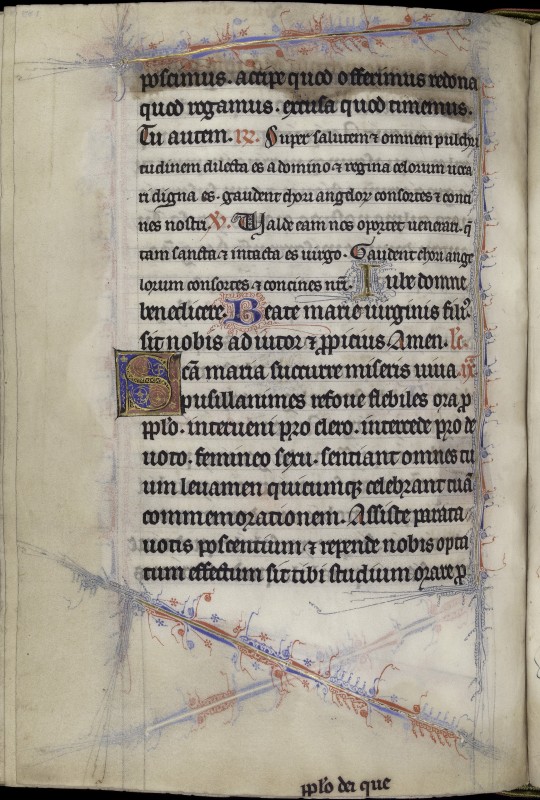 poscimus. accipe quod offerimus redona
quod rogamus. excusa quod timemus.
Tu autem. R. Super salutem ⁊ omnem pulchri
tudinem dilecta es a domino ⁊ regina celorum uoca
ri digna es. gaudent chori angeloꝝ consortes ⁊ conci
nes nostri. V. Ualde eam nos oportet uenerari. q̄
tam sancta ⁊ intacta es uirgo. Gaudent chori ange
lorum consortes ⁊ concines nr̄i. Iube domne
benedicere. Beate marie uirginis filiꝰ
sit nobis adiutor ⁊ ꝓpicius. Amen. lc̄.
Scā maria succurre miseris iuua
pusillanimes refoue flebiles ora ꝓ
pplo. interueni pro clero. intercede pro de
uoto. femineo sexu. sentiant omnes tu
um leuamen quicumqꝫ celebrant tuā
commemorationem. Assiste parata
uotis poscentium ⁊ repende nobis opta
tum effectum sit tibi studium orare ꝓ
pplo dei que